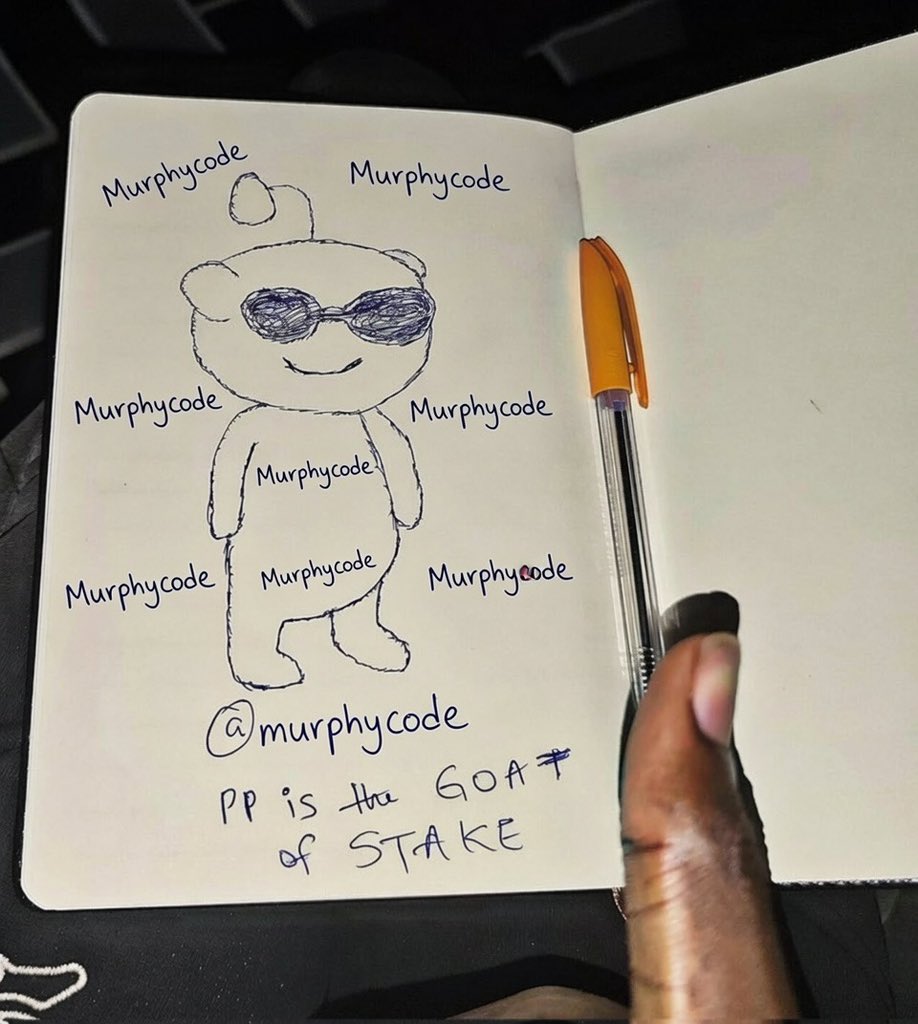 Murphycode
Murphycode
Murphycode
Murphycode
Murphycode
Murphycode
Murphycode
Murphycode
@murphycode
PP is the GOAT
of STAKE